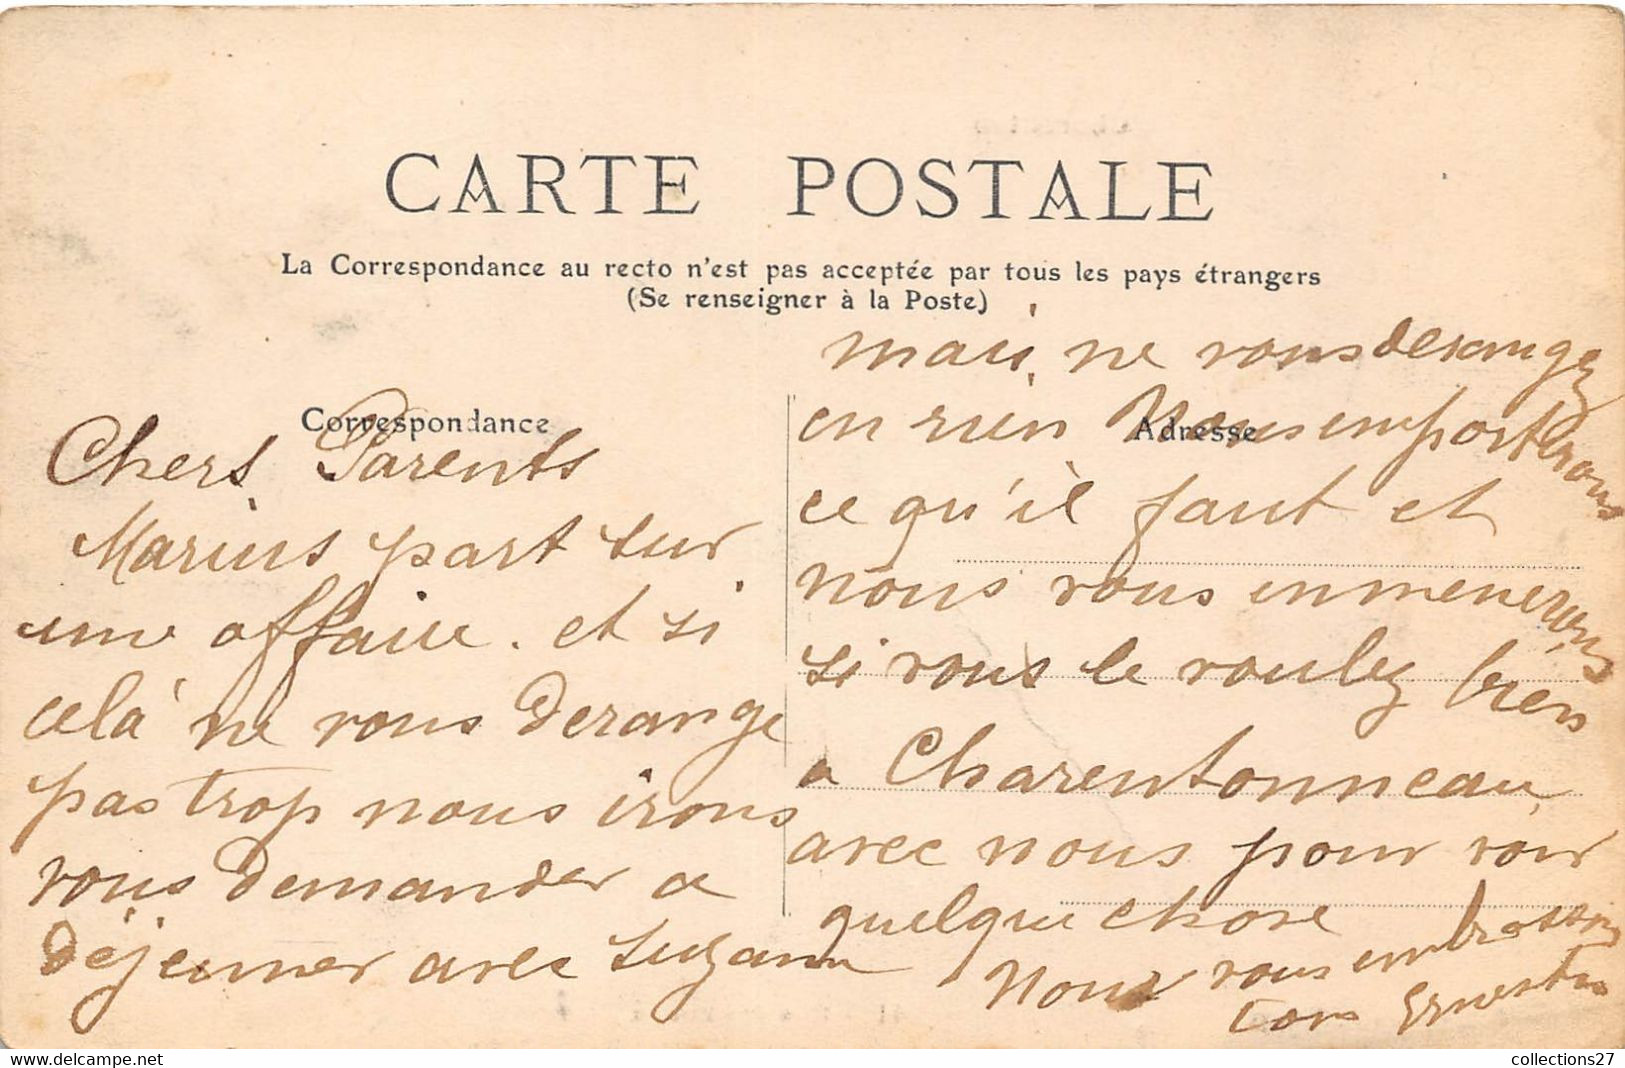 CARTE POSTALE
La Correspondance au recto n'est pas acceptée par tous les pays étrangers
(Se renseigner à la Poste)
Correspondance
Chers Parents
Marius part sur
une affaire. et si
celà ne vous derange
pas trop nous irons
vous demander a
déjeuner avec Suzanne
Adresse
mais ne vous derangez
en rien Nous emporterons
ce qu'il faut et
nous vous enmenerons
si vous le voulez bien
a Charentonneau
avec nous pour voir
quelque chose
Nous vous embrassons
tous Ernestine
collections27